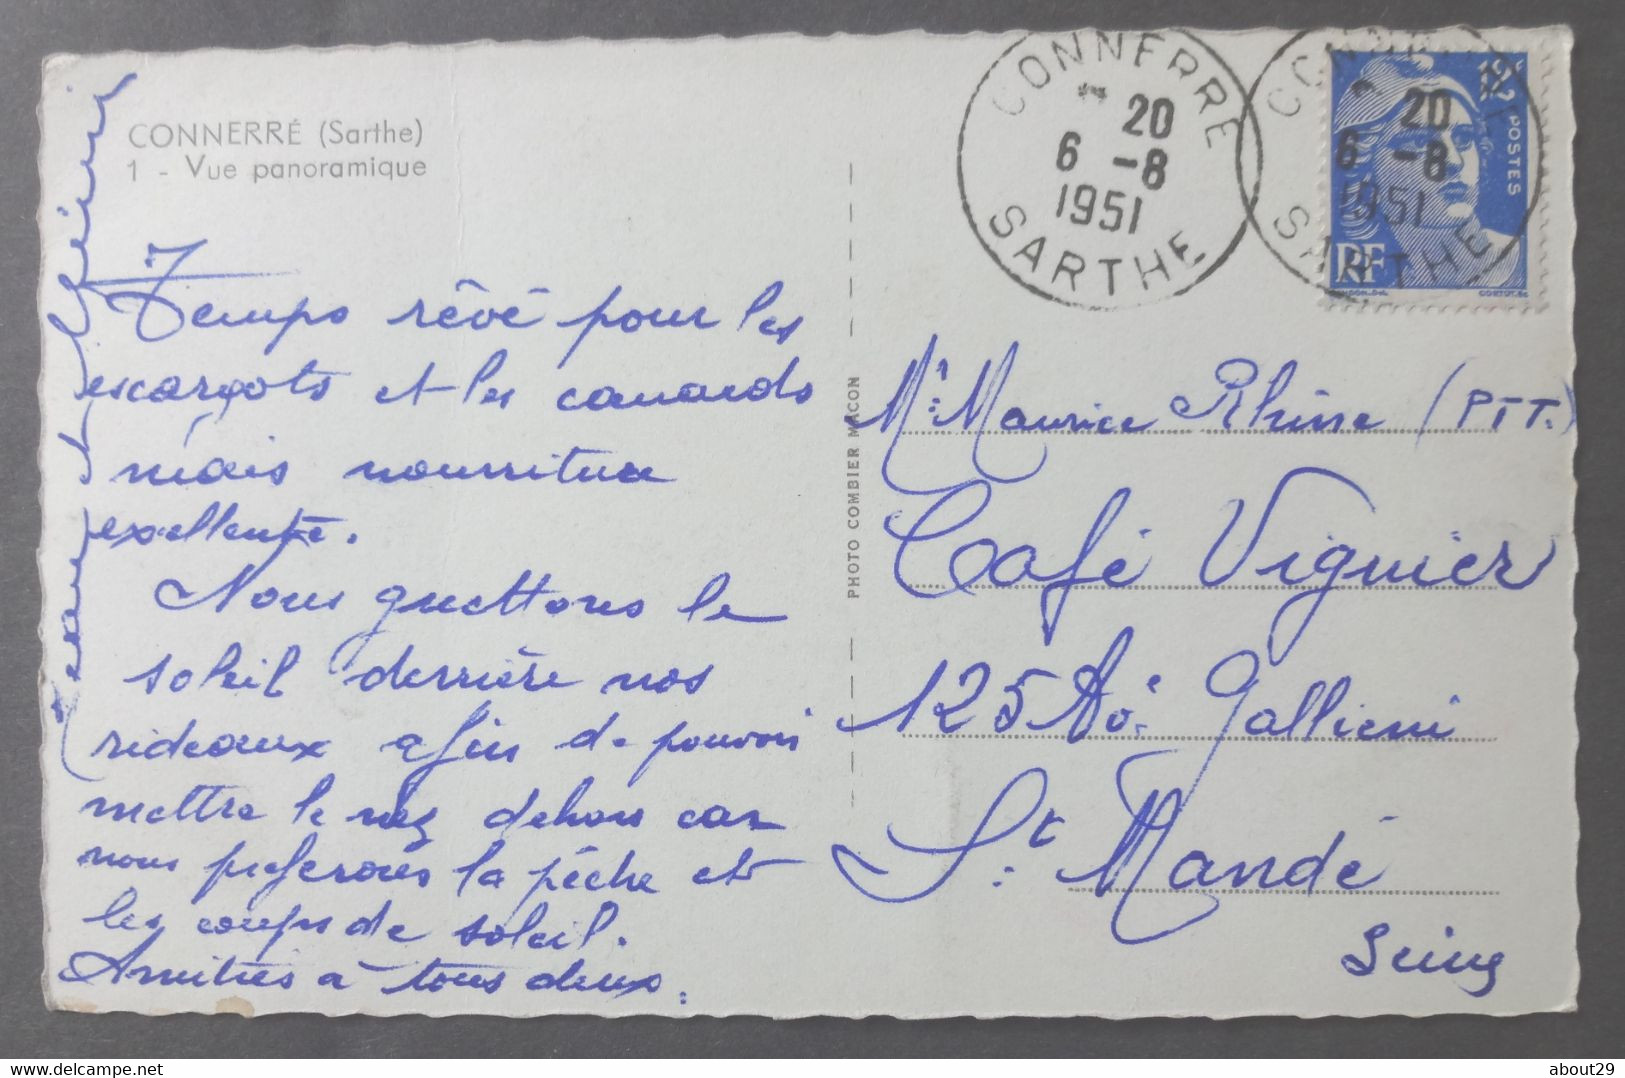 CONNERRÉ (Sarthe)
1 - Vue panoramique
Temps rêvé pour les
escargots et les canards
mais nourriture
excellente.
Nous guettons le
soleil derrière nos
rideaux afin de pouvoir
mettre le nez dehors car
nous préférons la pêche et
les coups de soleil.
Amitiés à tous deux.
PHOTO COMBIER MACON
CONNERRE
20
6 -8
1951
SARTHE
CONNERRE
20
6 -8
1951
SARTHE
POSTES
RF
Mr. Maurice Rhine (PTT.)
Café Viguier
125 Av. Gallieni
St. Mandé
Seine
about29